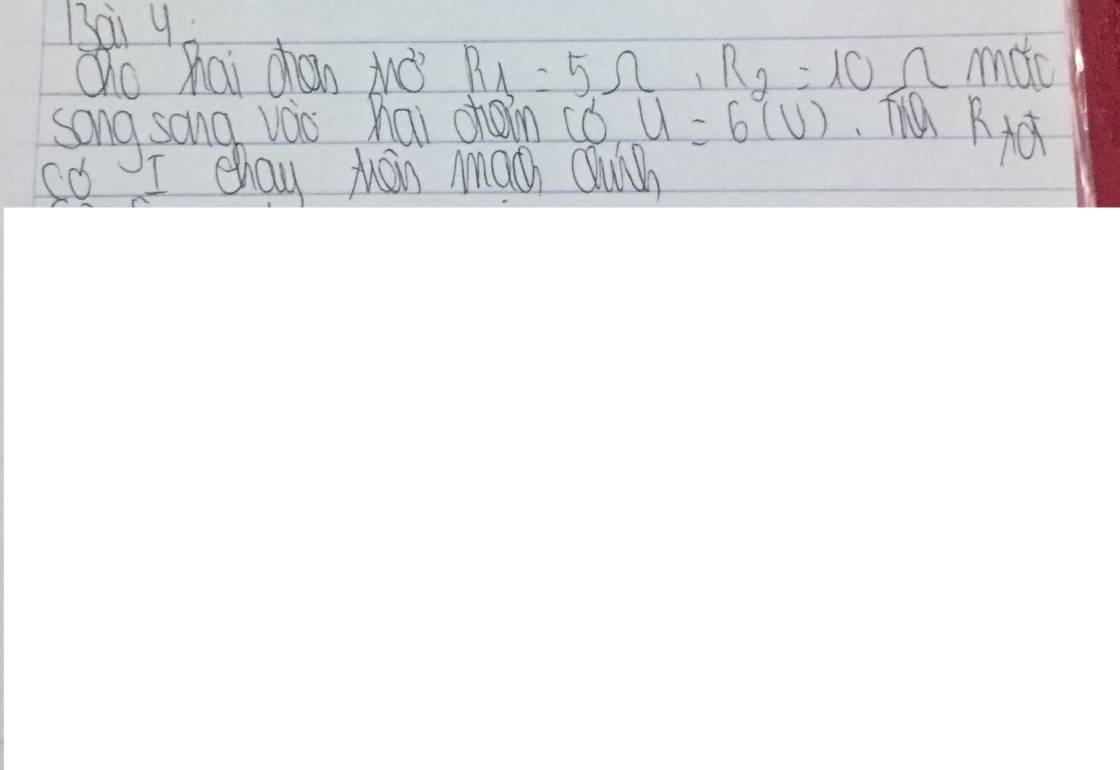 Bài 4.
Cho hai điện trở R1 = 5 Ω , R2 = 10 Ω mắc
song song vào hai điểm có U = 6 (V). Tính R tđ
có I chạy trên mạch chính